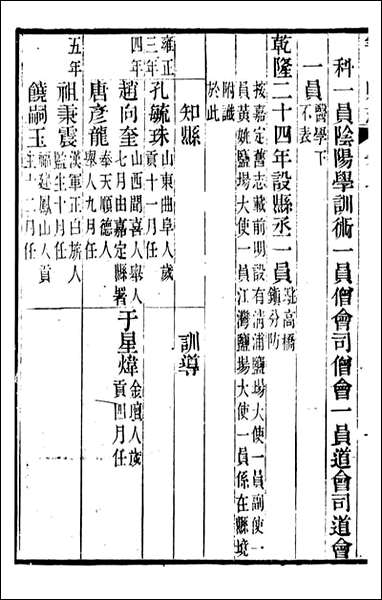 科一員陰陽學訓術一員僧會司僧會一員道會司道會
一員醫學下
不表
乾隆二十四年設縣丞一員駐高橋
鎮分防
按嘉定舊志載前明設有清浦鹽場大使一員副使一
員黃姚鹽場大使一員江灣鹽場大使一員係在縣境
附識
於此
知縣
訓導
雍正
三年
孔毓珠山東曲阜人歲
貢十一月任
四年
趙向奎山西聞喜人舉人
七月由嘉定縣署
于星煒金壇人歲
貢四月任
唐彥龍奉天順德人
舉人九月任
五年
祖秉震漢軍正白旂人
監生十月任
饒嗣玉福建鳳山人貢
生十二月任